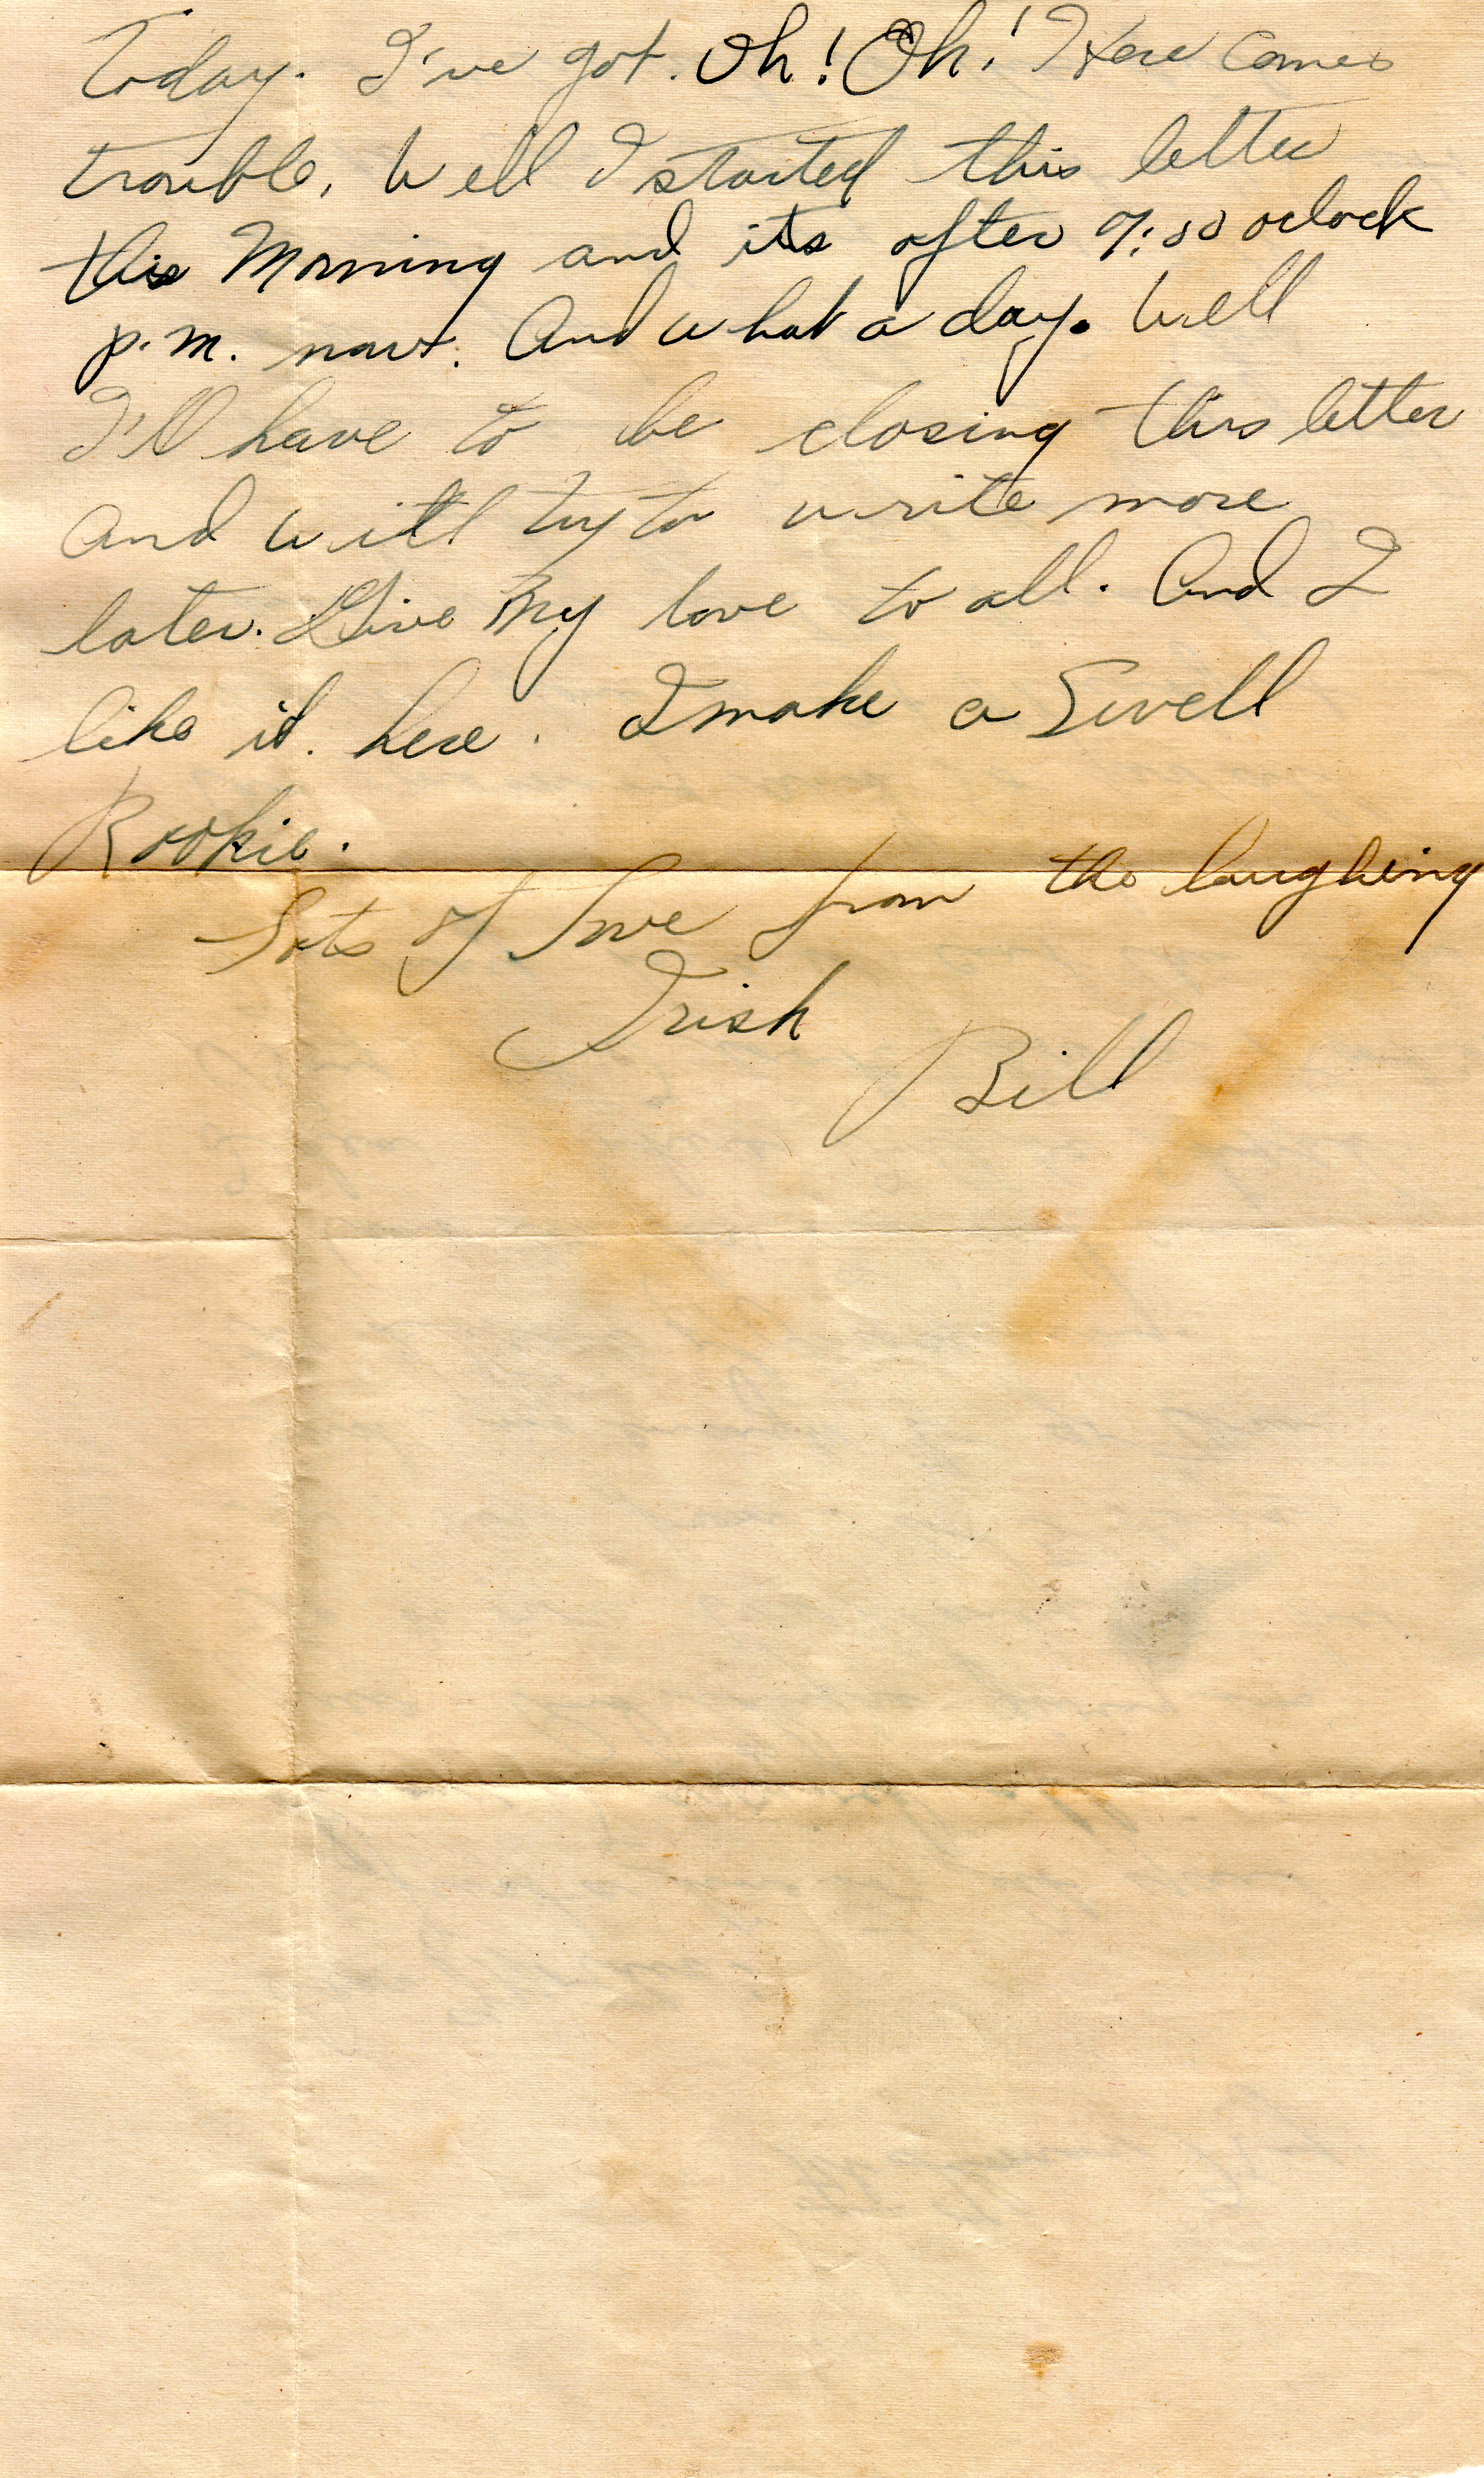 Today. I've got. Oh! Oh! Here Comes
trouble. Well I started this letter
this Morning and its after 9:00 oclock
p.m. now. And what a day. Well
I'll have to be closing this letter
And will try to write more
later. Give My love to all. And I
like it. here. I make a Swell
Rookie.
Lots of love from the laughing
Irish
Bill